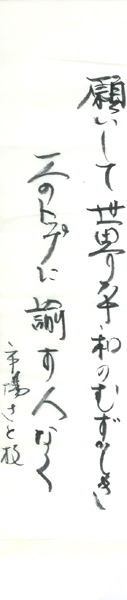 願いして世界平和のむずかしき
一人のトップに諭す人なく
市場さと枝